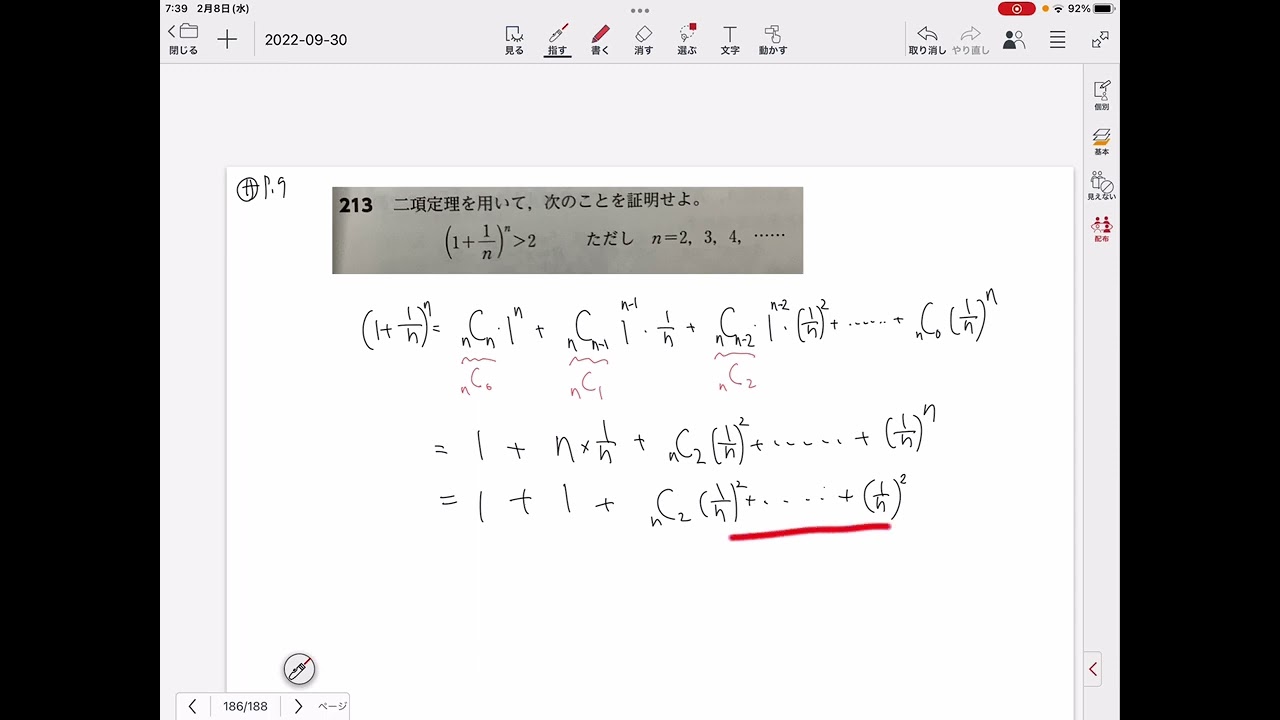 7:39 2月8日(水)
92%
閉じる
2022-09-30
見る 指す 書く 消す 選ぶ 文字 動かす
取り消し やり直し
個別
基本
見えない
配布
P.9
213 二項定理を用いて，次のことを証明せよ。
(1+1/n)^n>2 ただし n=2, 3, 4, ……
(1+1/n)^n = nCn・1^n + nCn-1 1^n-1・1/n + nCn-2・1^n-2・(1/n)^2 + …… + nC0 (1/n)^n
nC0 nC1 nC2
= 1 + n×1/n + nC2 (1/n)^2 + …… + (1/n)^n
= 1 + 1 + nC2 (1/n)^2 + …… + (1/n)^2
186/188 ページ